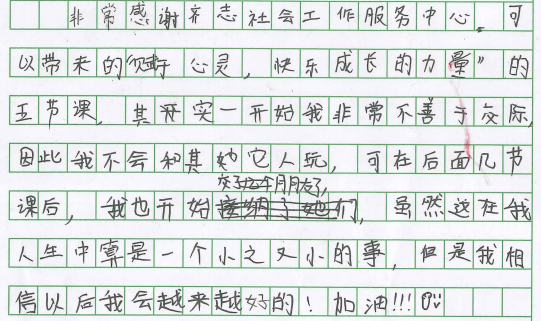 非常感谢齐志社会工作服务中心，可
以带来的心灵，快乐成长的力量”的
五节课，其开实一开始我非常不善于交际，
因此我不会和其她它人玩，可在后面几节
交了好几个朋友了，
课后，我也开始接纳了她们，虽然这在我
人生中算是一个小之又小的事，但是我相
信以后我会越来越好的！加油!!!